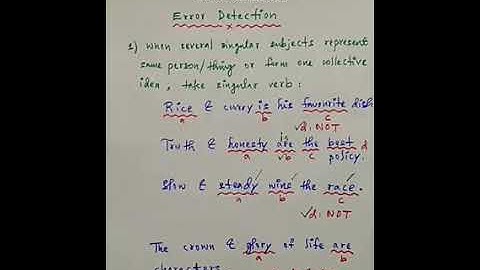 Error Detection
1) When several singular subjects represent
same person/thing or form one collective
idea, take singular verb:
Rice & curry is his favourite dish
a b c
✓d. NOT
Truth & honesty are the best
is
a ✓b c d
policy.
Slow & steady wins the race.
a b c
✓d. NOT
The crown & glory of life are
a b
character